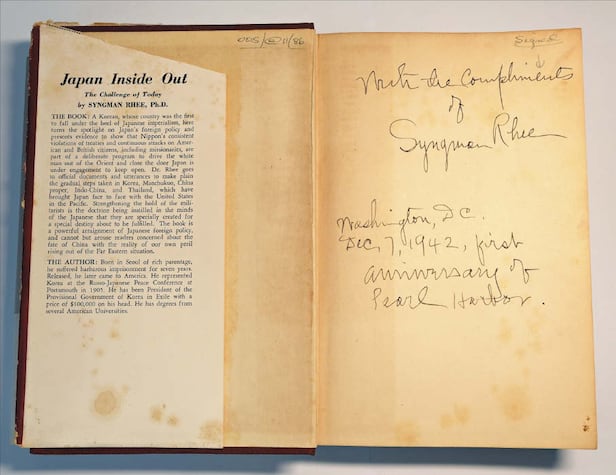 Japan Inside Out
The Challenge of Today
by SYNGMAN RHEE, Ph.D.
THE BOOK: A Korean, whose country was the first
to fall under the heel of Japanese imperialism, here
turns the spotlight on Japan's foreign policy and
presents evidence to show that Nippon's consistent
violations of treaties and continuous attacks on Amer-
ican and British citizens, including missionaries, are
part of a deliberate program to drive the white
man out of the Orient and close the door Japan is
under engagement to keep open. Dr. Rhee goes
to official documents and utterances to make plain
the gradual steps taken in Korea, Manchukuo, China
proper, Indo-China, and Thailand, which have
brought Japan face to face with the United States
in the Pacific. Strengthening the hold of the mili-
tarists is the doctrine being instilled in the minds
of the Japanese that they are specially created for
a special destiny about to be fulfilled. The book
is a powerful arraignment of Japanese foreign policy,
and cannot but arouse readers concerned about the
fate of China with the reality of our own peril
rising out of the Far Eastern situation.
THE AUTHOR: Born in Seoul of rich parentage,
he suffered barbarous imprisonment for seven years.
Released, he later came to America. He represented
Korea at the Russo-Japanese Peace Conference at
Portsmouth in 1905. He has been President of the
Provisional Government of Korea in Exile with a
price of $300,000 on his head. He has degrees from
several American Universities.
11/86
Signed
With the Compliments
of
Syngman Rhee
Washington, D.C.
Dec, 7, 1942, first
anniversary of
Pearl Harbor.